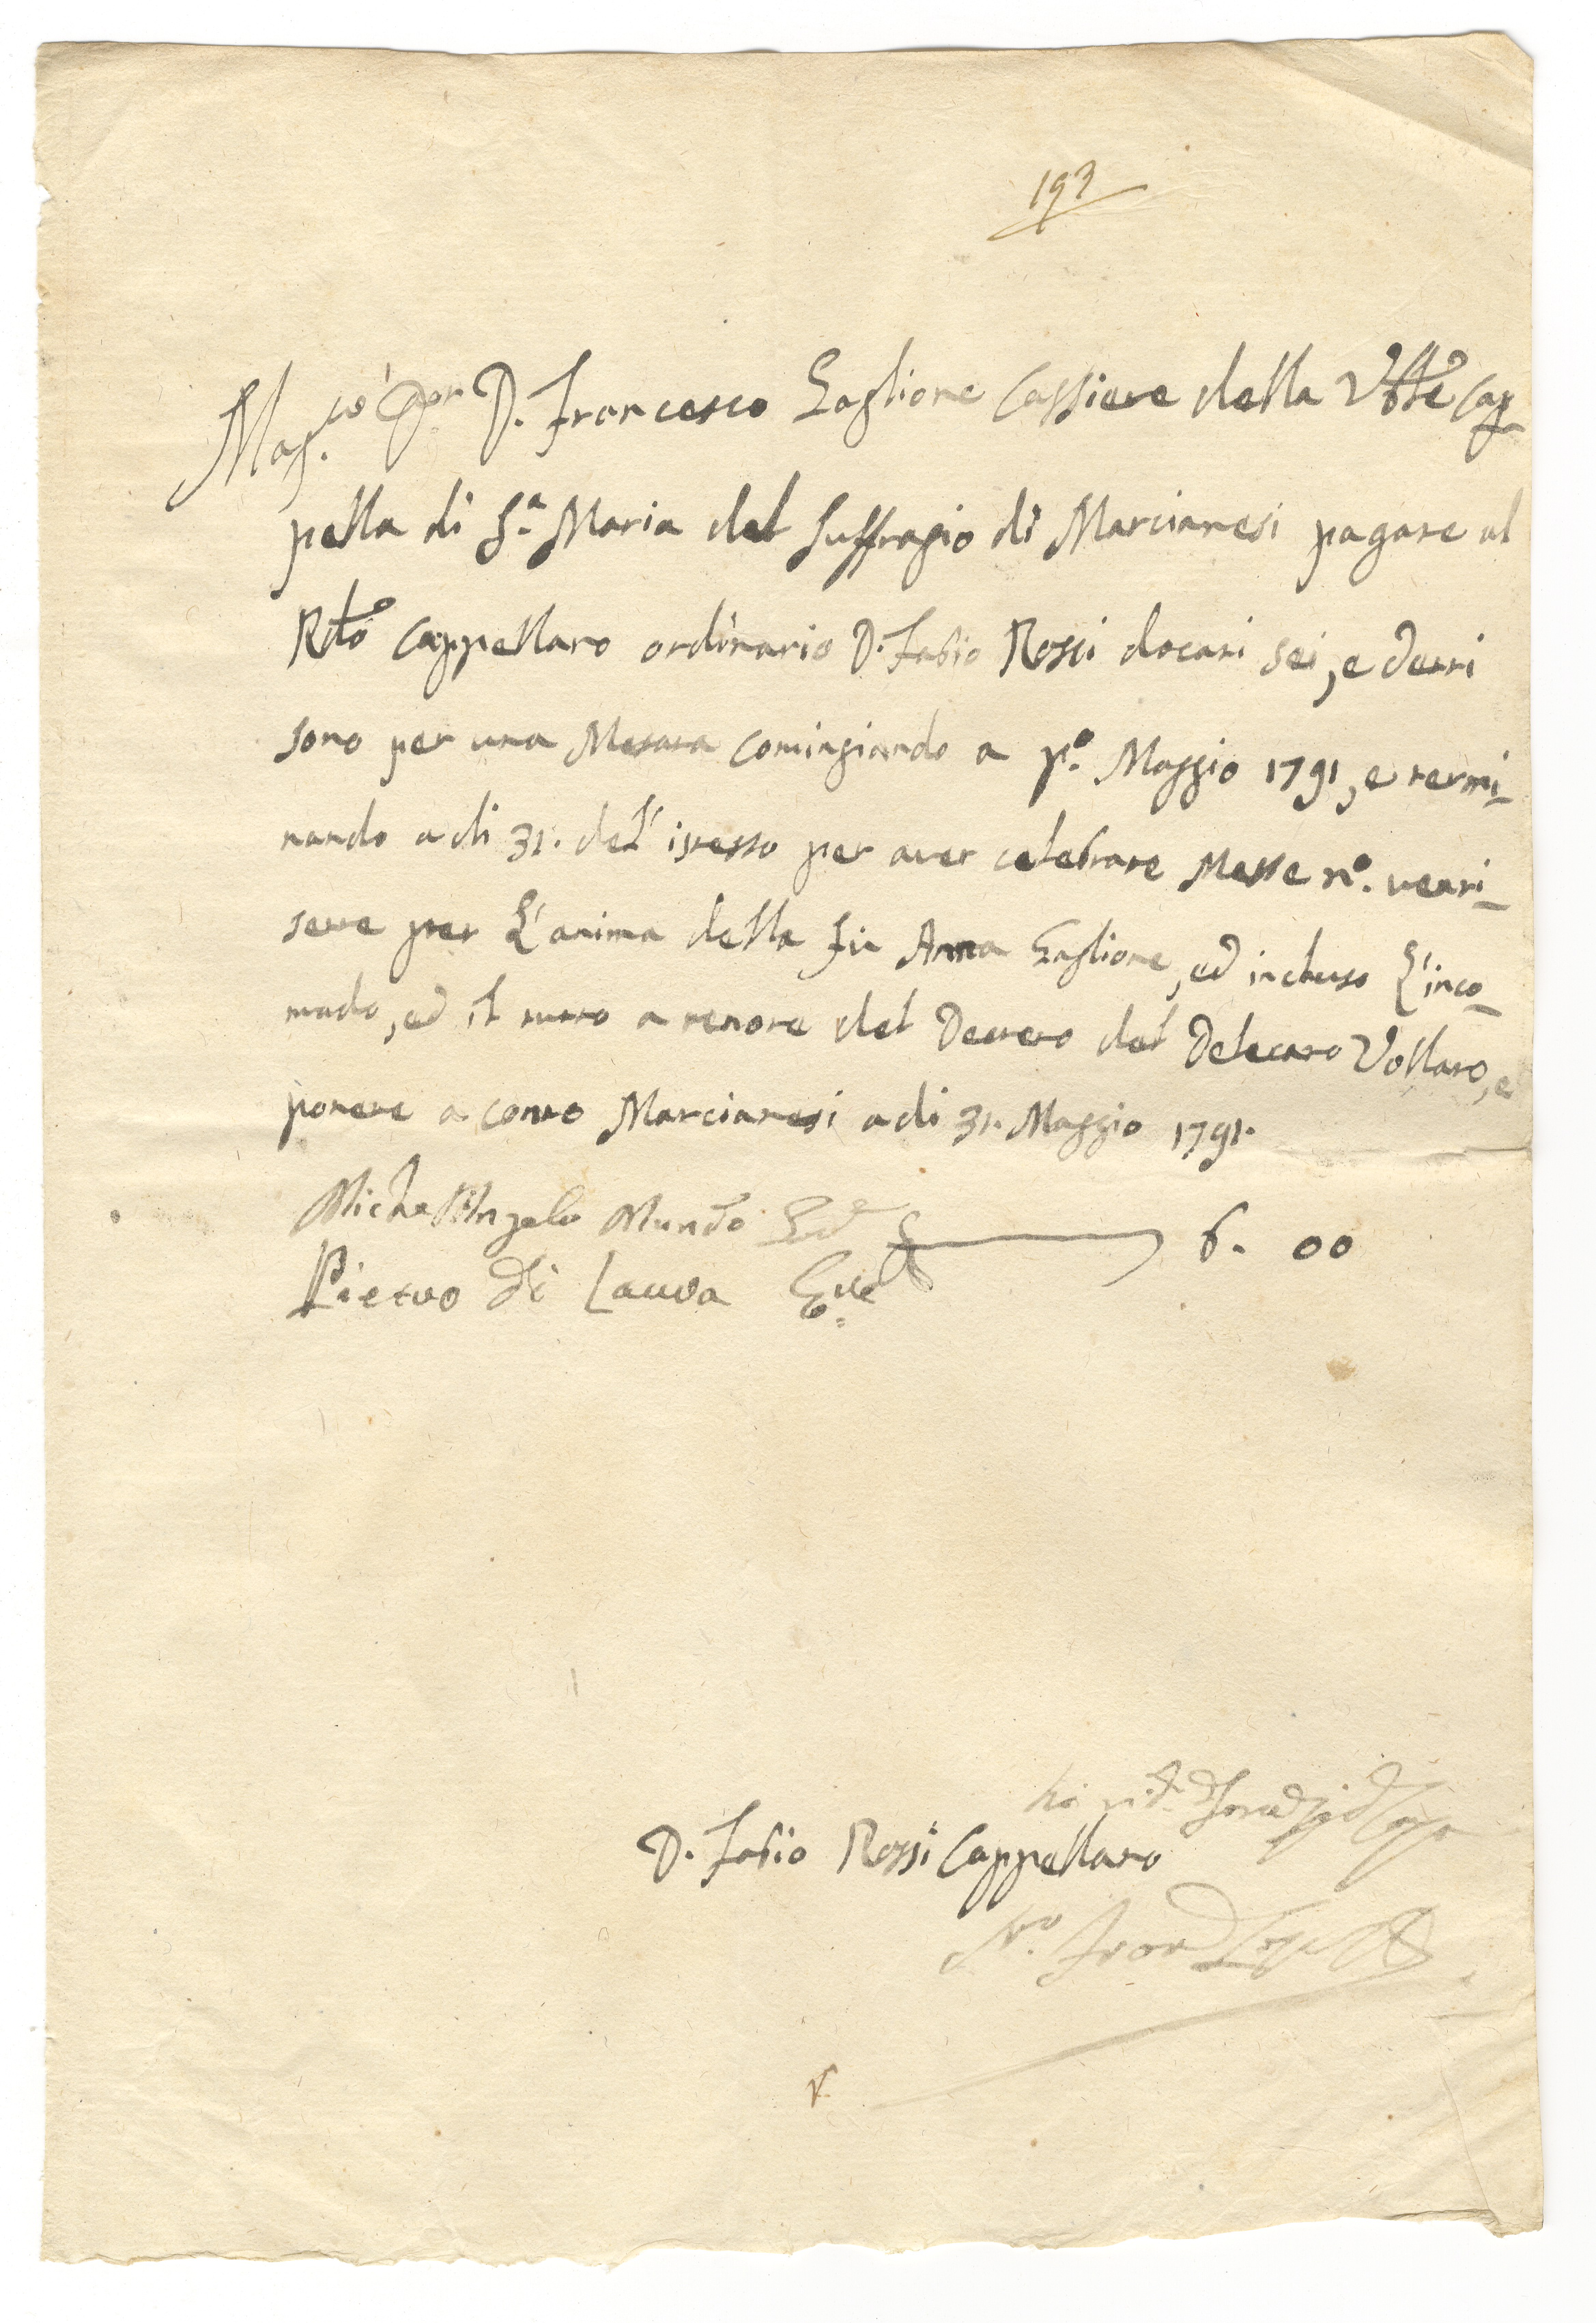 193
Mag.co D. Francesco Taglione Cassiere della Cap-
pella di S.a Maria del Suffragio di Marcianesi pagate al
R.do Cappellano ordinario D. Fabio Rossi docati sei, e detti
sono per una Mesata comingiando a p.o Maggio 1791, e termi-
nando a di 31. del' istesso per aver celebrate Messe n.o venti-
sette per L'anima della fu Anna Taglione, ed incluso L'inco-
modo, ed il tutto a tenore del Decreto del Delecato Vollaro, e
ponete a conto Marcianesi a di 31. Maggio 1791.
Michel Angelo Mundo 6. 00
Pietro di Lauro
D. Fabio Rossi Cappellano